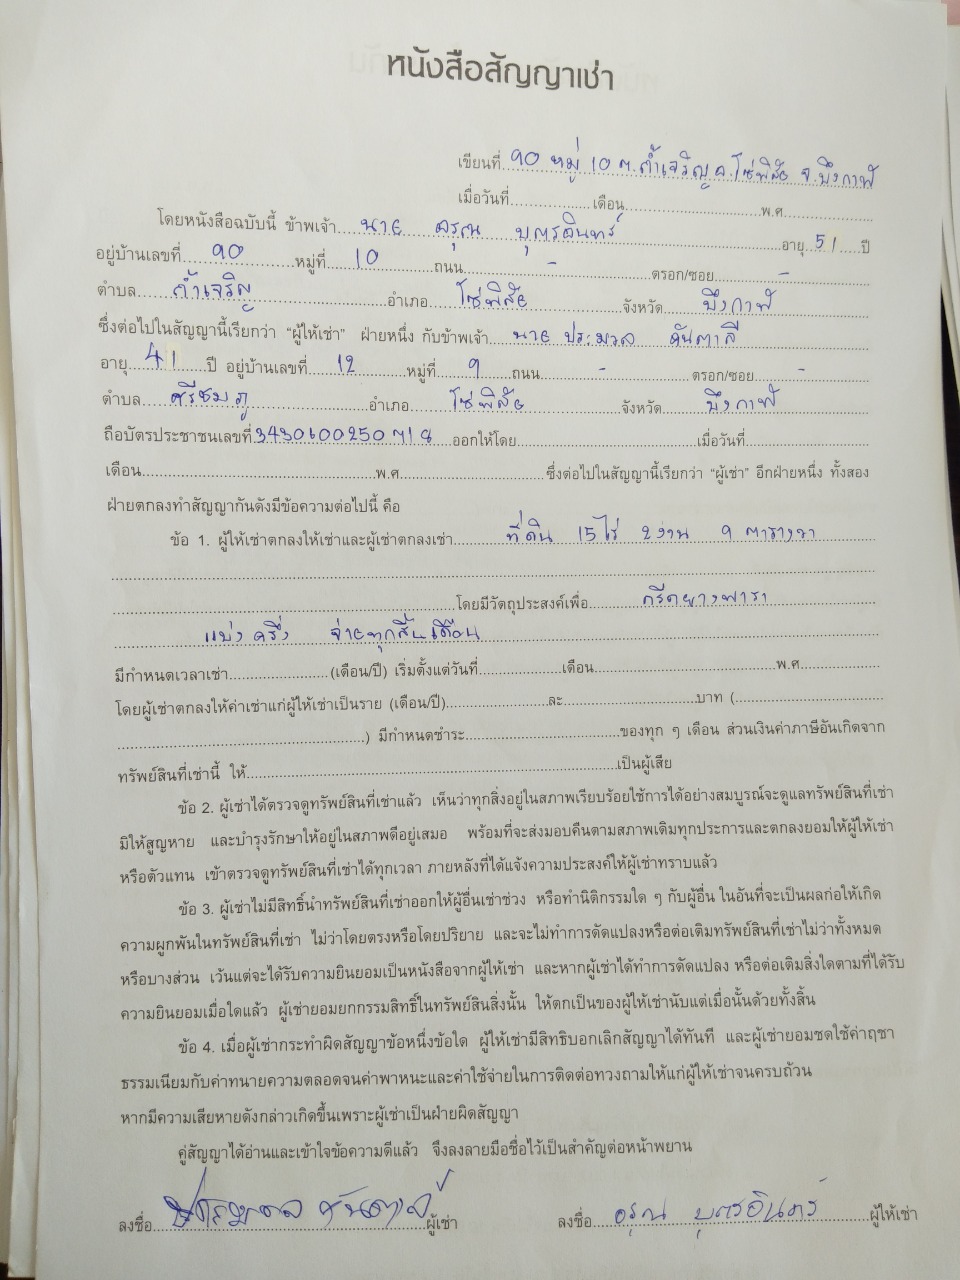 หนังสือสัญญาเช่า
เขียนที่ 90 หมู่ 10 ต.ถ้ำเจริญ อ.โซ่พิสัย จ.บึงกาฬ
เมื่อวันที่....................เดือน....................พ.ศ.....................
โดยหนังสือฉบับนี้ ข้าพเจ้า นาย อรุณ บุตรอินทร์ อายุ 51 ปี
อยู่บ้านเลขที่ 90 หมู่ที่ 10 ถนน - ตรอก/ซอย -
ตำบล ถ้ำเจริญ อำเภอ โซ่พิสัย จังหวัด บึงกาฬ
ซึ่งต่อไปในสัญญานี้เรียกว่า "ผู้ให้เช่า" ฝ่ายหนึ่ง กับข้าพเจ้า นาย ประมวล
อายุ 41 ปี อยู่บ้านเลขที่ 12 หมู่ที่ 9 ถนน - ตรอก/ซอย -
ตำบล ศรีชมภู อำเภอ โซ่พิสัย จังหวัด บึงกาฬ
ถือบัตรประชาชนเลขที่ ออกให้โดย....................เมื่อวันที่....................
เดือน....................พ.ศ.....................ซึ่งต่อไปในสัญญานี้เรียกว่า "ผู้เช่า" อีกฝ่ายหนึ่ง ทั้งสอง
ฝ่ายตกลงทำสัญญากันดังมีข้อความต่อไปนี้ คือ
ข้อ 1. ผู้ให้เช่าตกลงให้เช่าและผู้เช่าตกลงเช่า ที่ดิน 15 ไร่ 2 งาน 9 ตารางวา
โดยมีวัตถุประสงค์เพื่อ กรีดยางพารา
แบ่งครึ่ง จ่ายทุกสิ้นเดือน
มีกำหนดเวลาเช่า....................(เดือน/ปี) เริ่มตั้งแต่วันที่....................เดือน....................พ.ศ.....................
โดยผู้เช่าตกลงให้ค่าเช่าแก่ผู้ให้เช่าเป็นราย (เดือน/ปี)....................ละ....................บาท (....................
....................) มีกำหนดชำระ....................ของทุก ๆ เดือน ส่วนเงินค่าภาษีอันเกิดจาก
ทรัพย์สินที่เช่านี้ ให้....................เป็นผู้เสีย
ข้อ 2. ผู้เช่าได้ตรวจดูทรัพย์สินที่เช่าแล้ว เห็นว่าทุกสิ่งอยู่ในสภาพเรียบร้อยใช้การได้อย่างสมบูรณ์จะดูแลทรัพย์สินที่เช่า
มิให้สูญหาย และบำรุงรักษาให้อยู่ในสภาพดีอยู่เสมอ พร้อมที่จะส่งมอบคืนตามสภาพเดิมทุกประการและตกลงยอมให้ผู้ให้เช่า
หรือตัวแทน เข้าตรวจดูทรัพย์สินที่เช่าได้ทุกเวลา ภายหลังที่ได้แจ้งความประสงค์ให้ผู้เช่าทราบแล้ว
ข้อ 3. ผู้เช่าไม่มีสิทธิ์นำทรัพย์สินที่เช่าออกให้ผู้อื่นเช่าช่วง หรือทำนิติกรรมใด ๆ กับผู้อื่น ในอันที่จะเป็นผลก่อให้เกิด
ความผูกพันในทรัพย์สินที่เช่า ไม่ว่าโดยตรงหรือโดยปริยาย และจะไม่ทำการดัดแปลงหรือต่อเติมทรัพย์สินที่เช่าไม่ว่าทั้งหมด
หรือบางส่วน เว้นแต่จะได้รับความยินยอมเป็นหนังสือจากผู้ให้เช่า และหากผู้เช่าได้ทำการดัดแปลง หรือต่อเติมสิ่งใดตามที่ได้รับ
ความยินยอมเมื่อใดแล้ว ผู้เช่ายอมยกกรรมสิทธิ์ในทรัพย์สินสิ่งนั้น ให้ตกเป็นของผู้ให้เช่านับแต่เมื่อนั้นด้วยทั้งสิ้น
ข้อ 4. เมื่อผู้เช่ากระทำผิดสัญญาข้อหนึ่งข้อใด ผู้ให้เช่ามีสิทธิบอกเลิกสัญญาได้ทันที และผู้เช่ายอมชดใช้ค่าฤชา
ธรรมเนียมกับค่าทนายความตลอดจนค่าพาหนะและค่าใช้จ่ายในการติดต่อทวงถามให้แก่ผู้ให้เช่าจนครบถ้วน
หากมีความเสียหายดังกล่าวเกิดขึ้นเพราะผู้เช่าเป็นฝ่ายผิดสัญญา
คู่สัญญาได้อ่านและเข้าใจข้อความดีแล้ว จึงลงลายมือชื่อไว้เป็นสำคัญต่อหน้าพยาน
ลงชื่อ ประมวล ผู้เช่า ลงชื่อ อรุณ บุตรอินทร์ ผู้ให้เช่า